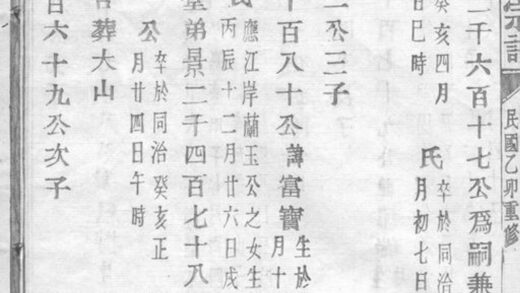 民國乙卯重修
二千六百十七公爲嗣兼
癸亥四月
日巳時
氏
卒於同治
月初七日
二公三子
百八十公諱富寶
生於
月十
應江岸蘭玉公之女生
丙辰十二月廿六日戌
弟景二千四百七十八
公
卒於同治癸亥正
月廿四日午時
葬大山
百六十九公次子